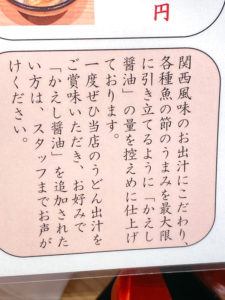 円
関西風味のお出汁にこだわり、
各種魚の節のうまみを最大限
に引き立てるように「かえし
醤油」の量を控えめに仕上げ
ております。
一度ぜひ当店のうどん出汁を
ご賞味いただき、お好みで
「かえし醤油」を追加された
い方は、スタッフまでお声が
けください。